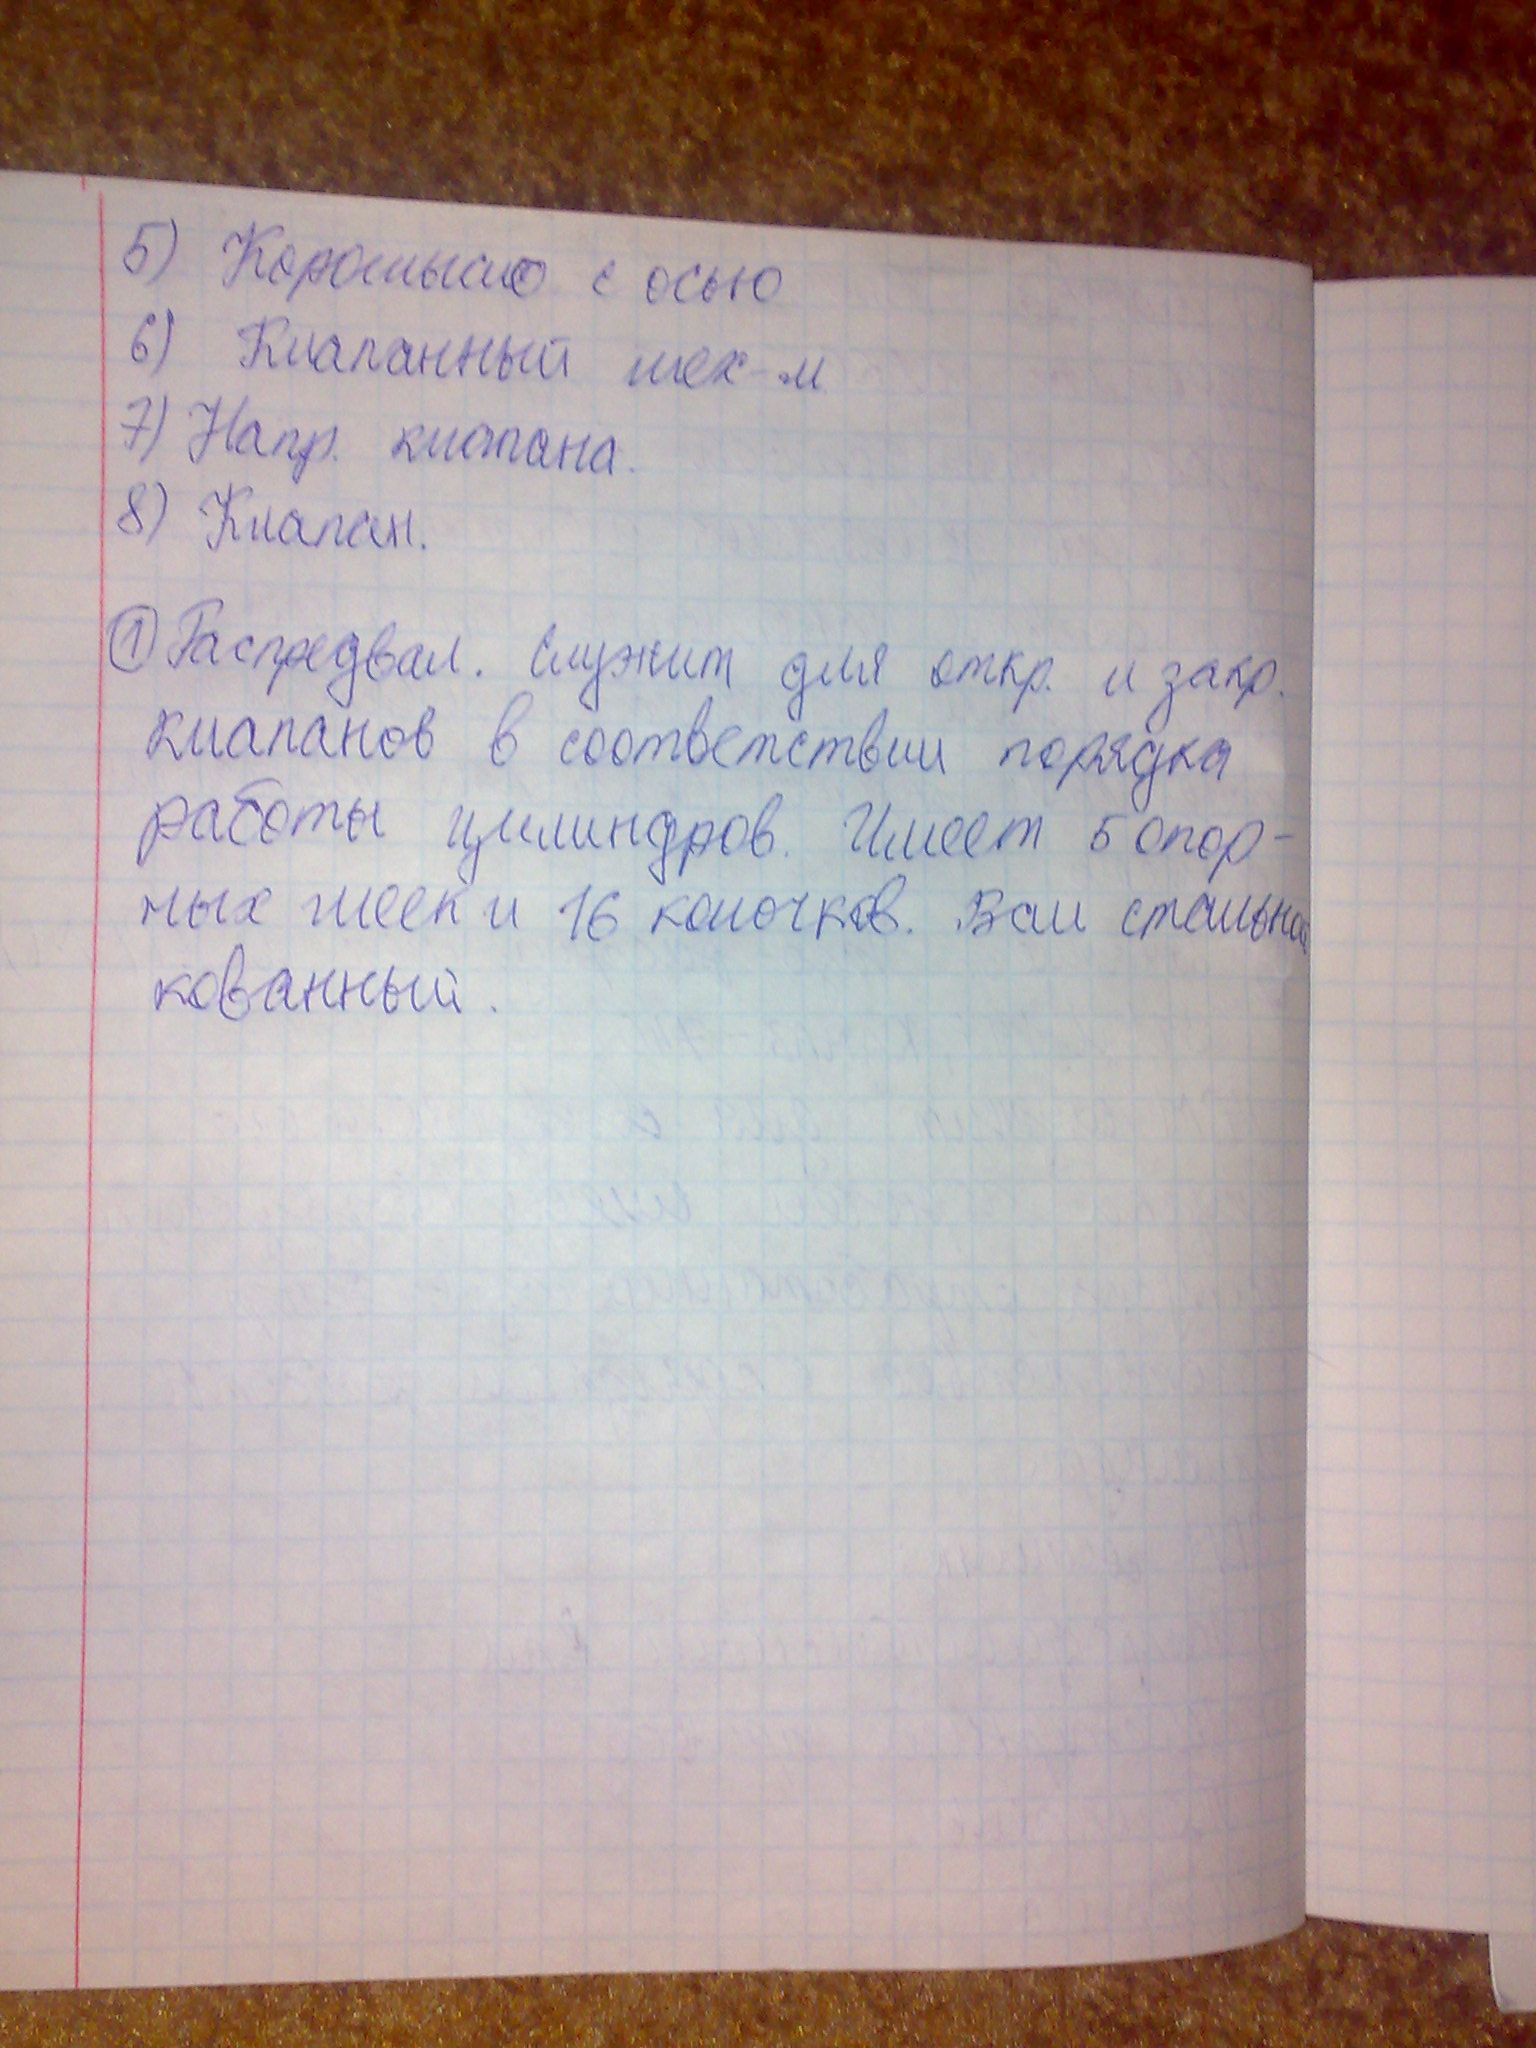 5) Коромысло с осью
6) Клапанный мех-м
7) Напр. клапана.
8) Клапан.
① Распредвал. Служит для откр. и закр.
клапанов в соответствии порядка
работы цилиндров. Имеет 5 опор-
ных шеек и 16 колочков. Вал стальной
кованный.